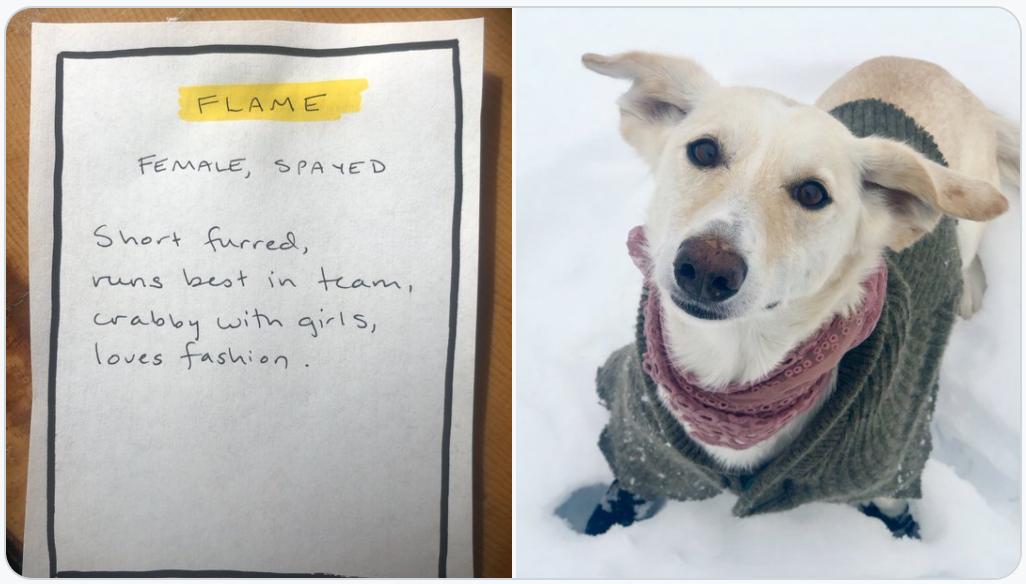 FLAME
FEMALE, SPAYED
Short furred,
runs best in team,
crabby with girls,
loves fashion.